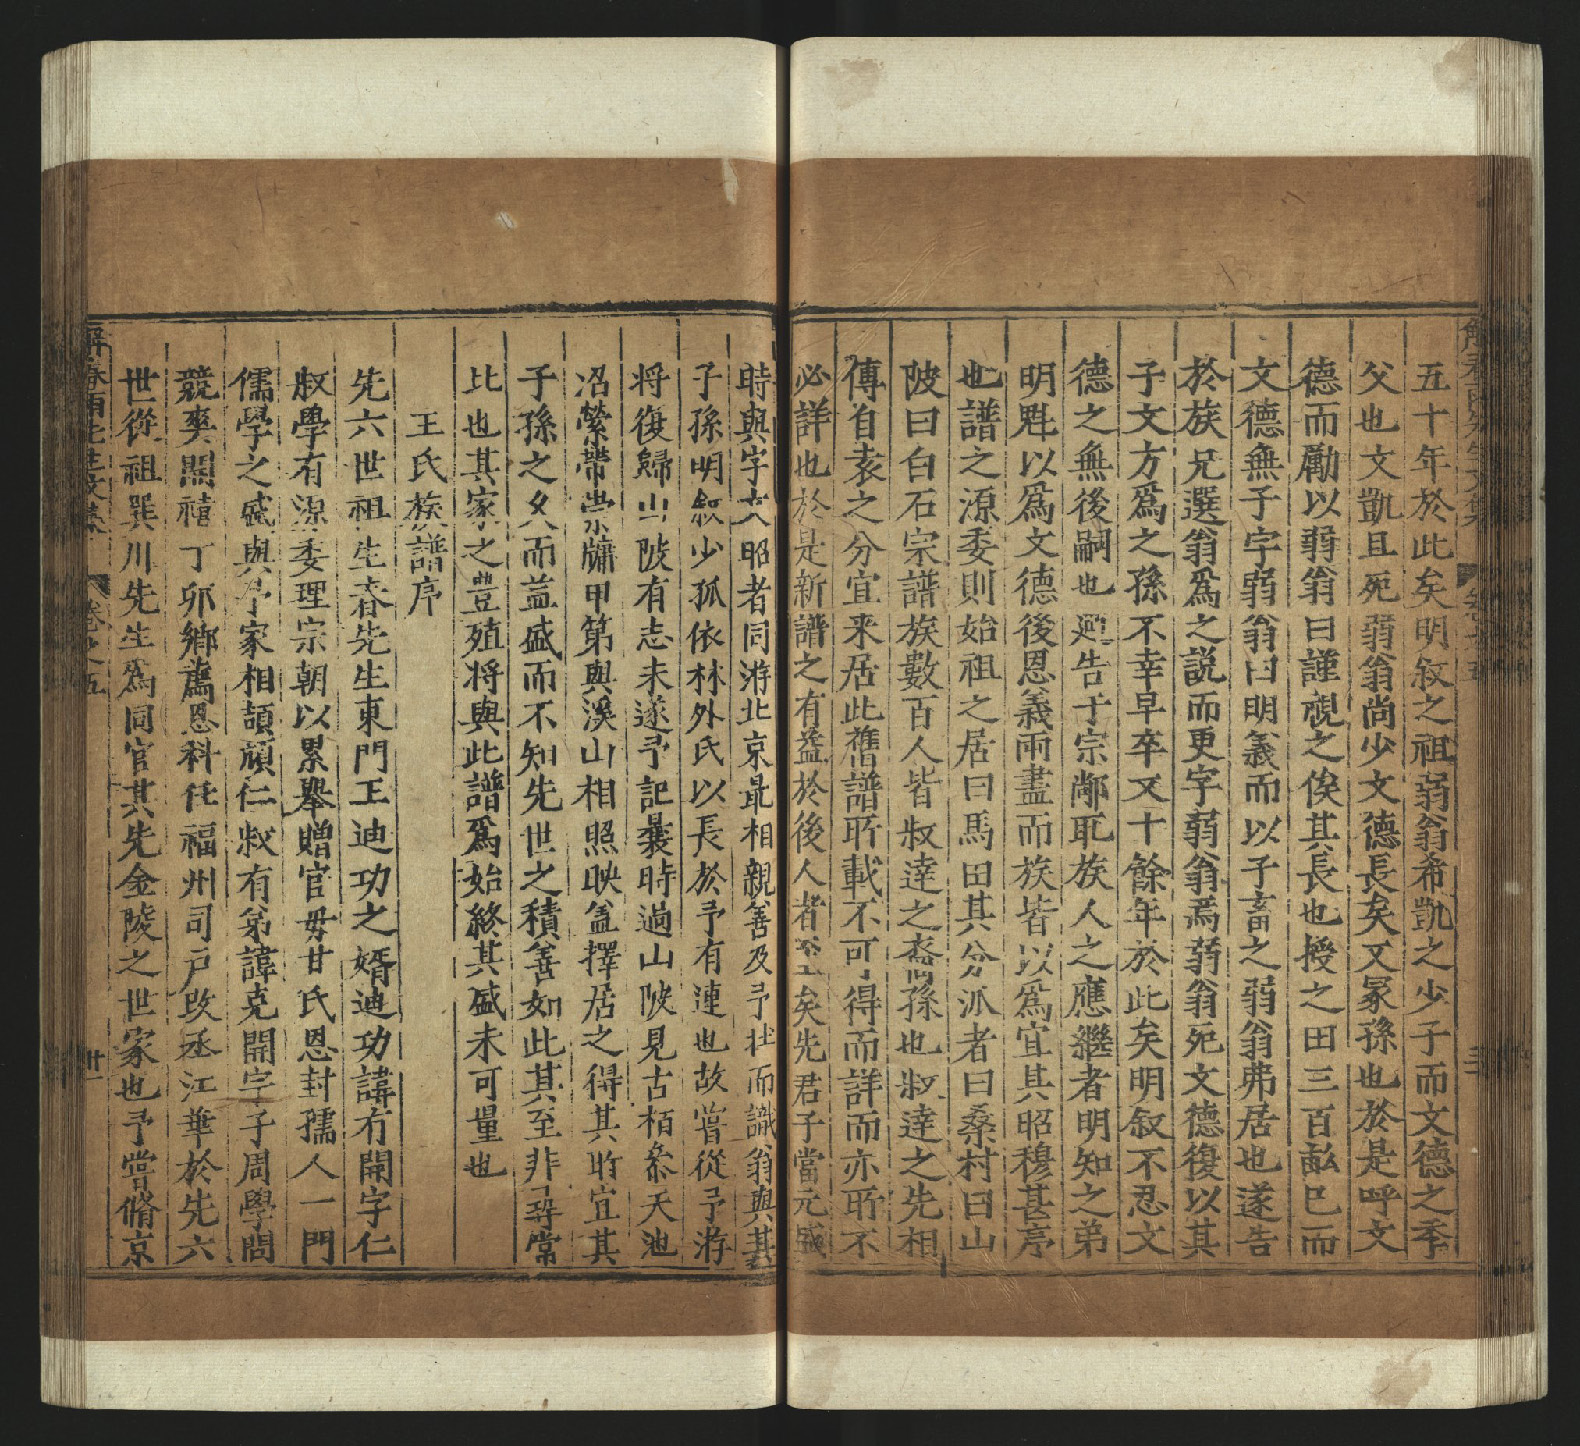 五十年於此矣明叙之祖弱翁希凱之少子而文德之季
父也文凱且死弱翁尚少文德長矣又冢孫也於是呼文
德而勵以弱翁曰謹視之俟其長也授之田三百畝巳而
文德無子字弱翁曰明義而以子畜之弱翁弗居也遂告
於族兄選翁爲之説而更字弱翁焉弱翁死文德復以其
子文方爲之孫不幸早卒又十餘年於此矣明叙不忍文
德之無後嗣也廼告于宗鄰耴族人之應繼者明知之弟
明魁以爲文德後恩義兩盡而族皆以爲宜其昭穆甚序
也譜之源委則始祖之居曰馬田其分派者曰桑村曰山
陂曰白石宗譜族數百人皆叔達之裔孫也叔達之先相
傳自袁之分宜来居此舊譜所載不可得而詳而亦所不
必詳也於是新譜之有益於後人者至矣先君子當元盛
時與字文昭者同游北京最相親善及予壮而識翁與其
子孫明叙少孤依林外氏以長於予有連也故嘗從予游
将復歸山陂有志未遂予記曩時過山陂見古栢叅天池
沼縈帶崇牗甲第與溪山相照映盖擇居之得其所宜其
子孫之久而益盛而不知先世之積善如此其至非尋常
比也其家之豊殖将與此譜爲始終其盛未可量也
王氏族譜序
先六世祖生春先生東門王迪功之婿迪功諱有開字仁
叔學有源委理宗朝以累舉贈官毋甘氏恩封孺人一門
儒學之盛與予家相頡頏仁叔有弟諱克開字子周學問
競爽開禧丁卯鄉薦恩科任福州司戸改丞江華於先六
世從祖巽川先生爲同官其先金陵之世家也予嘗脩京
解春雨先生文集 卷之五 廿一